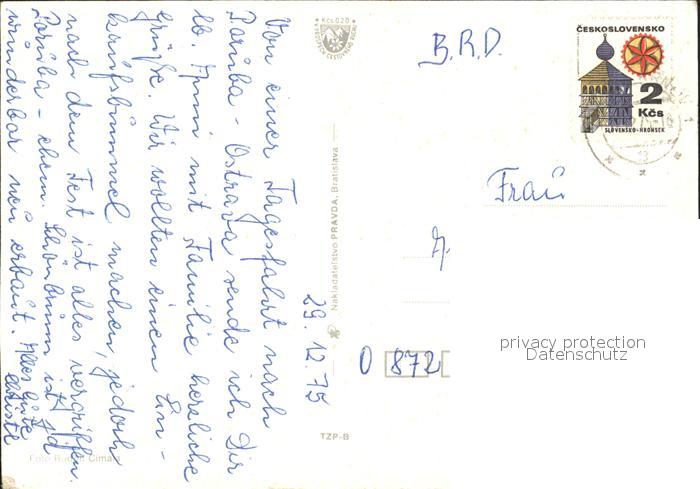 Von einer Tagesfahrt nach
Poruba - Ostrava sende ich Dir
lb. Anni mit Familie herzliche
Grüße. Wir wollten einen Ein-
kaufsbummel machen, jedoch
nach dem Fest ist alles vergriffen.
Poruba - ehem. Schönbrunn ist
wunderbar neu erbaut. Alles Gute
29.12.75
Foto Rudolf
Kčs 0,20
Nakladateľstvo PRAVDA, Bratislava
TZP-B
B.R.D.
ČESKOSLOVENSKO
2
Kčs
SLOVENSKO-HRONSEK
Frau
A.
D 872
privacy protection
Datenschutz